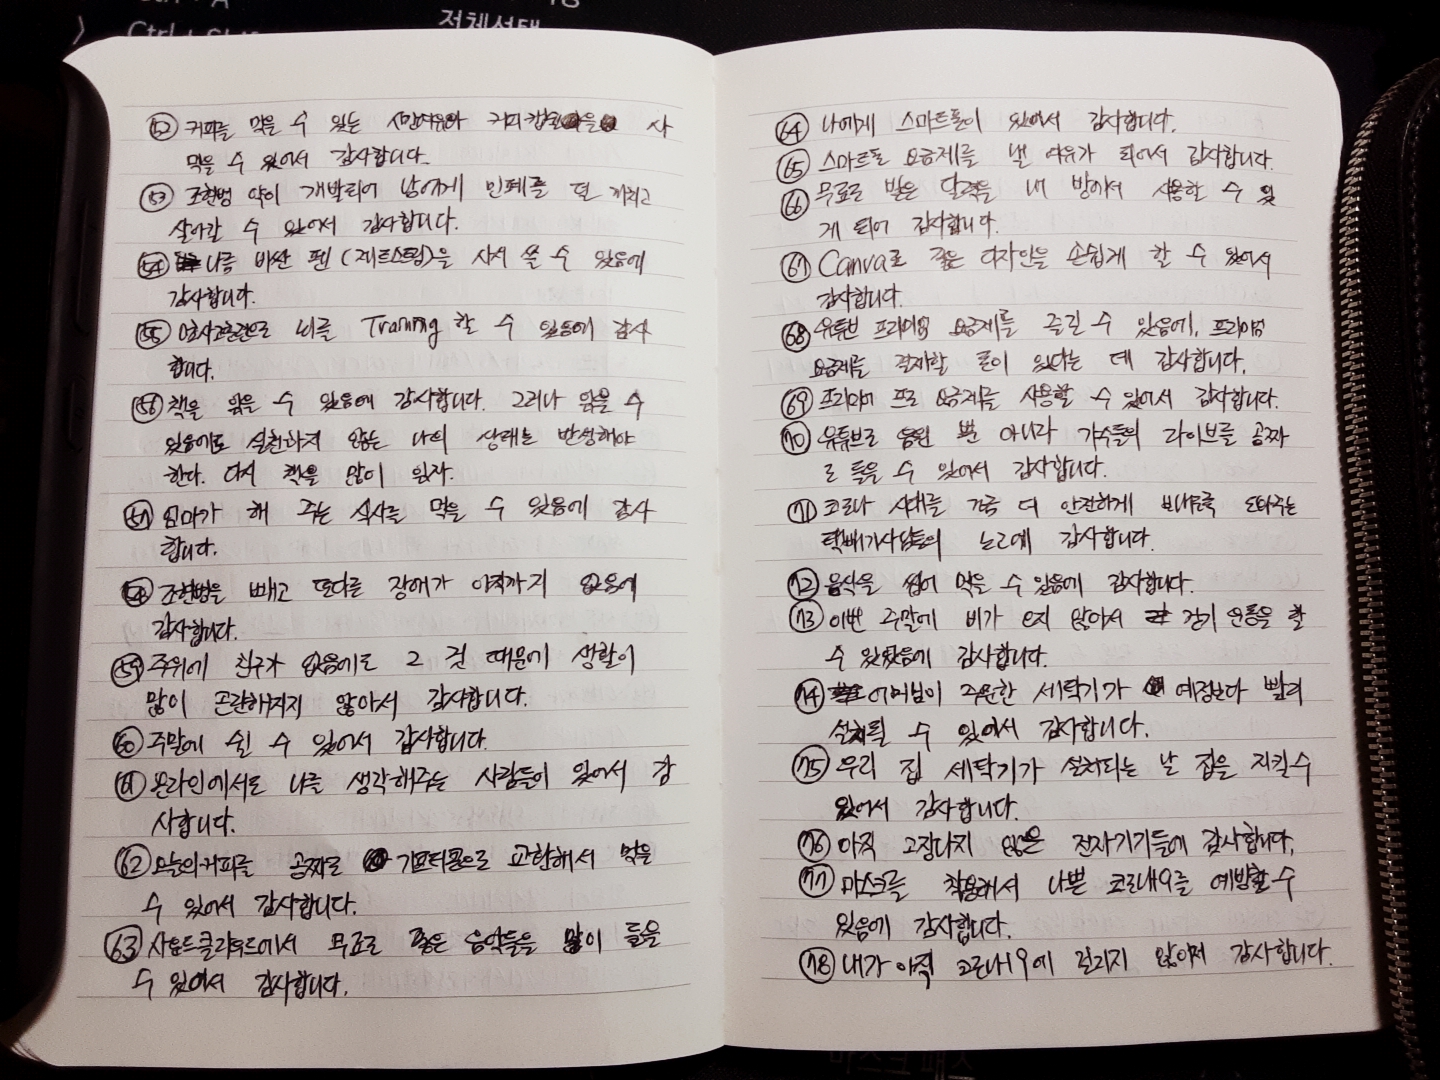 전체선택
52 커피를 먹을 수 있는 커피 사
먹을 수 있어서 감사합니다.
53 조현병 약이 개발되어 남에게 민폐를 덜 끼치고
살아갈 수 있어서 감사합니다.
54 나름 비싼 펜(제트스트림)을 사서 쓸 수 있음에
감사합니다.
55 뇌를 Training 할 수 있음에 감사
합니다.
56 책을 읽을 수 있음에 감사합니다. 그러나 읽을 수
있음에도 실천하지 않는 나의 상태는 반성해야
한다. 다시 책을 많이 읽자.
57 엄마가 해 주는 식사를 먹을 수 있음에 감사
합니다.
58 조현병을 빼고 또다른 장애가 아직까지 없음에
감사합니다.
59 주위에 친구가 없음에도 그 것 때문에 생활이
많이 곤란해지지 않아서 감사합니다.
60 주말에 쉴 수 있어서 감사합니다.
61 온라인에서도 나를 생각해주는 사람들이 있어서 감
사합니다.
62 오늘의커피를 공짜로 기프티콘으로 교환해서 먹을
수 있어서 감사합니다.
63 사운드클라우드에서 무료로 좋은 음악들을 많이 들을
수 있어서 감사합니다.
64 나에게 스마트폰이 있어서 감사합니다.
65 스마트폰 요금제를 낼 여유가 되어서 감사합니다.
66 무료로 받은 달력을 내 방에서 사용할 수 있
게 되어 감사합니다.
67 Canva로 좋은 디자인을 손쉽게 할 수 있어서
감사합니다.
68 유튜브 프리미엄 요금제를 즐길 수 있음에, 프리미엄
요금제를 결제할 돈이 있다는 데 감사합니다.
69 프리미어 프로 요금제를 사용할 수 있어서 감사합니다.
70 유튜브로 음원 뿐 아니라 가수들의 라이브를 공짜
로 들을 수 있어서 감사합니다.
71 코로나 시대를 더 안전하게 보내도록 도와주는
택배기사님들의 노고에 감사합니다.
72 음식을 씹어 먹을 수 있음에 감사합니다.
73 이번 주말에 비가 오지 않아서 걷기 운동을 할
수 있었음에 감사합니다.
74 어머님이 주문한 세탁기가 예정보다 빨리
설치될 수 있어서 감사합니다.
75 우리 집 세탁기가 설치되는 날 집을 지킬수
있어서 감사합니다.
76 아직 고장나지 않은 전자기기들에 감사합니다.
77 마스크를 착용해서 나쁜 코로나19를 예방할수
있음에 감사합니다.
78 내가 아직 코로나19에 걸리지 않아서 감사합니다.